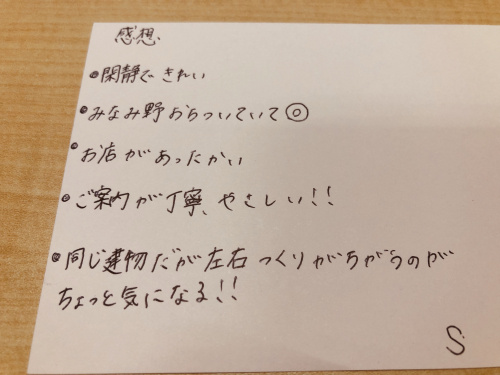 感想
・閑静できれい
・みなみ野おちついていて◎
・お店があったかい
・ご案内が丁寧、やさしい!!
・同じ建物だが左右つくりがちがうのが
ちょっと気になる!!
S